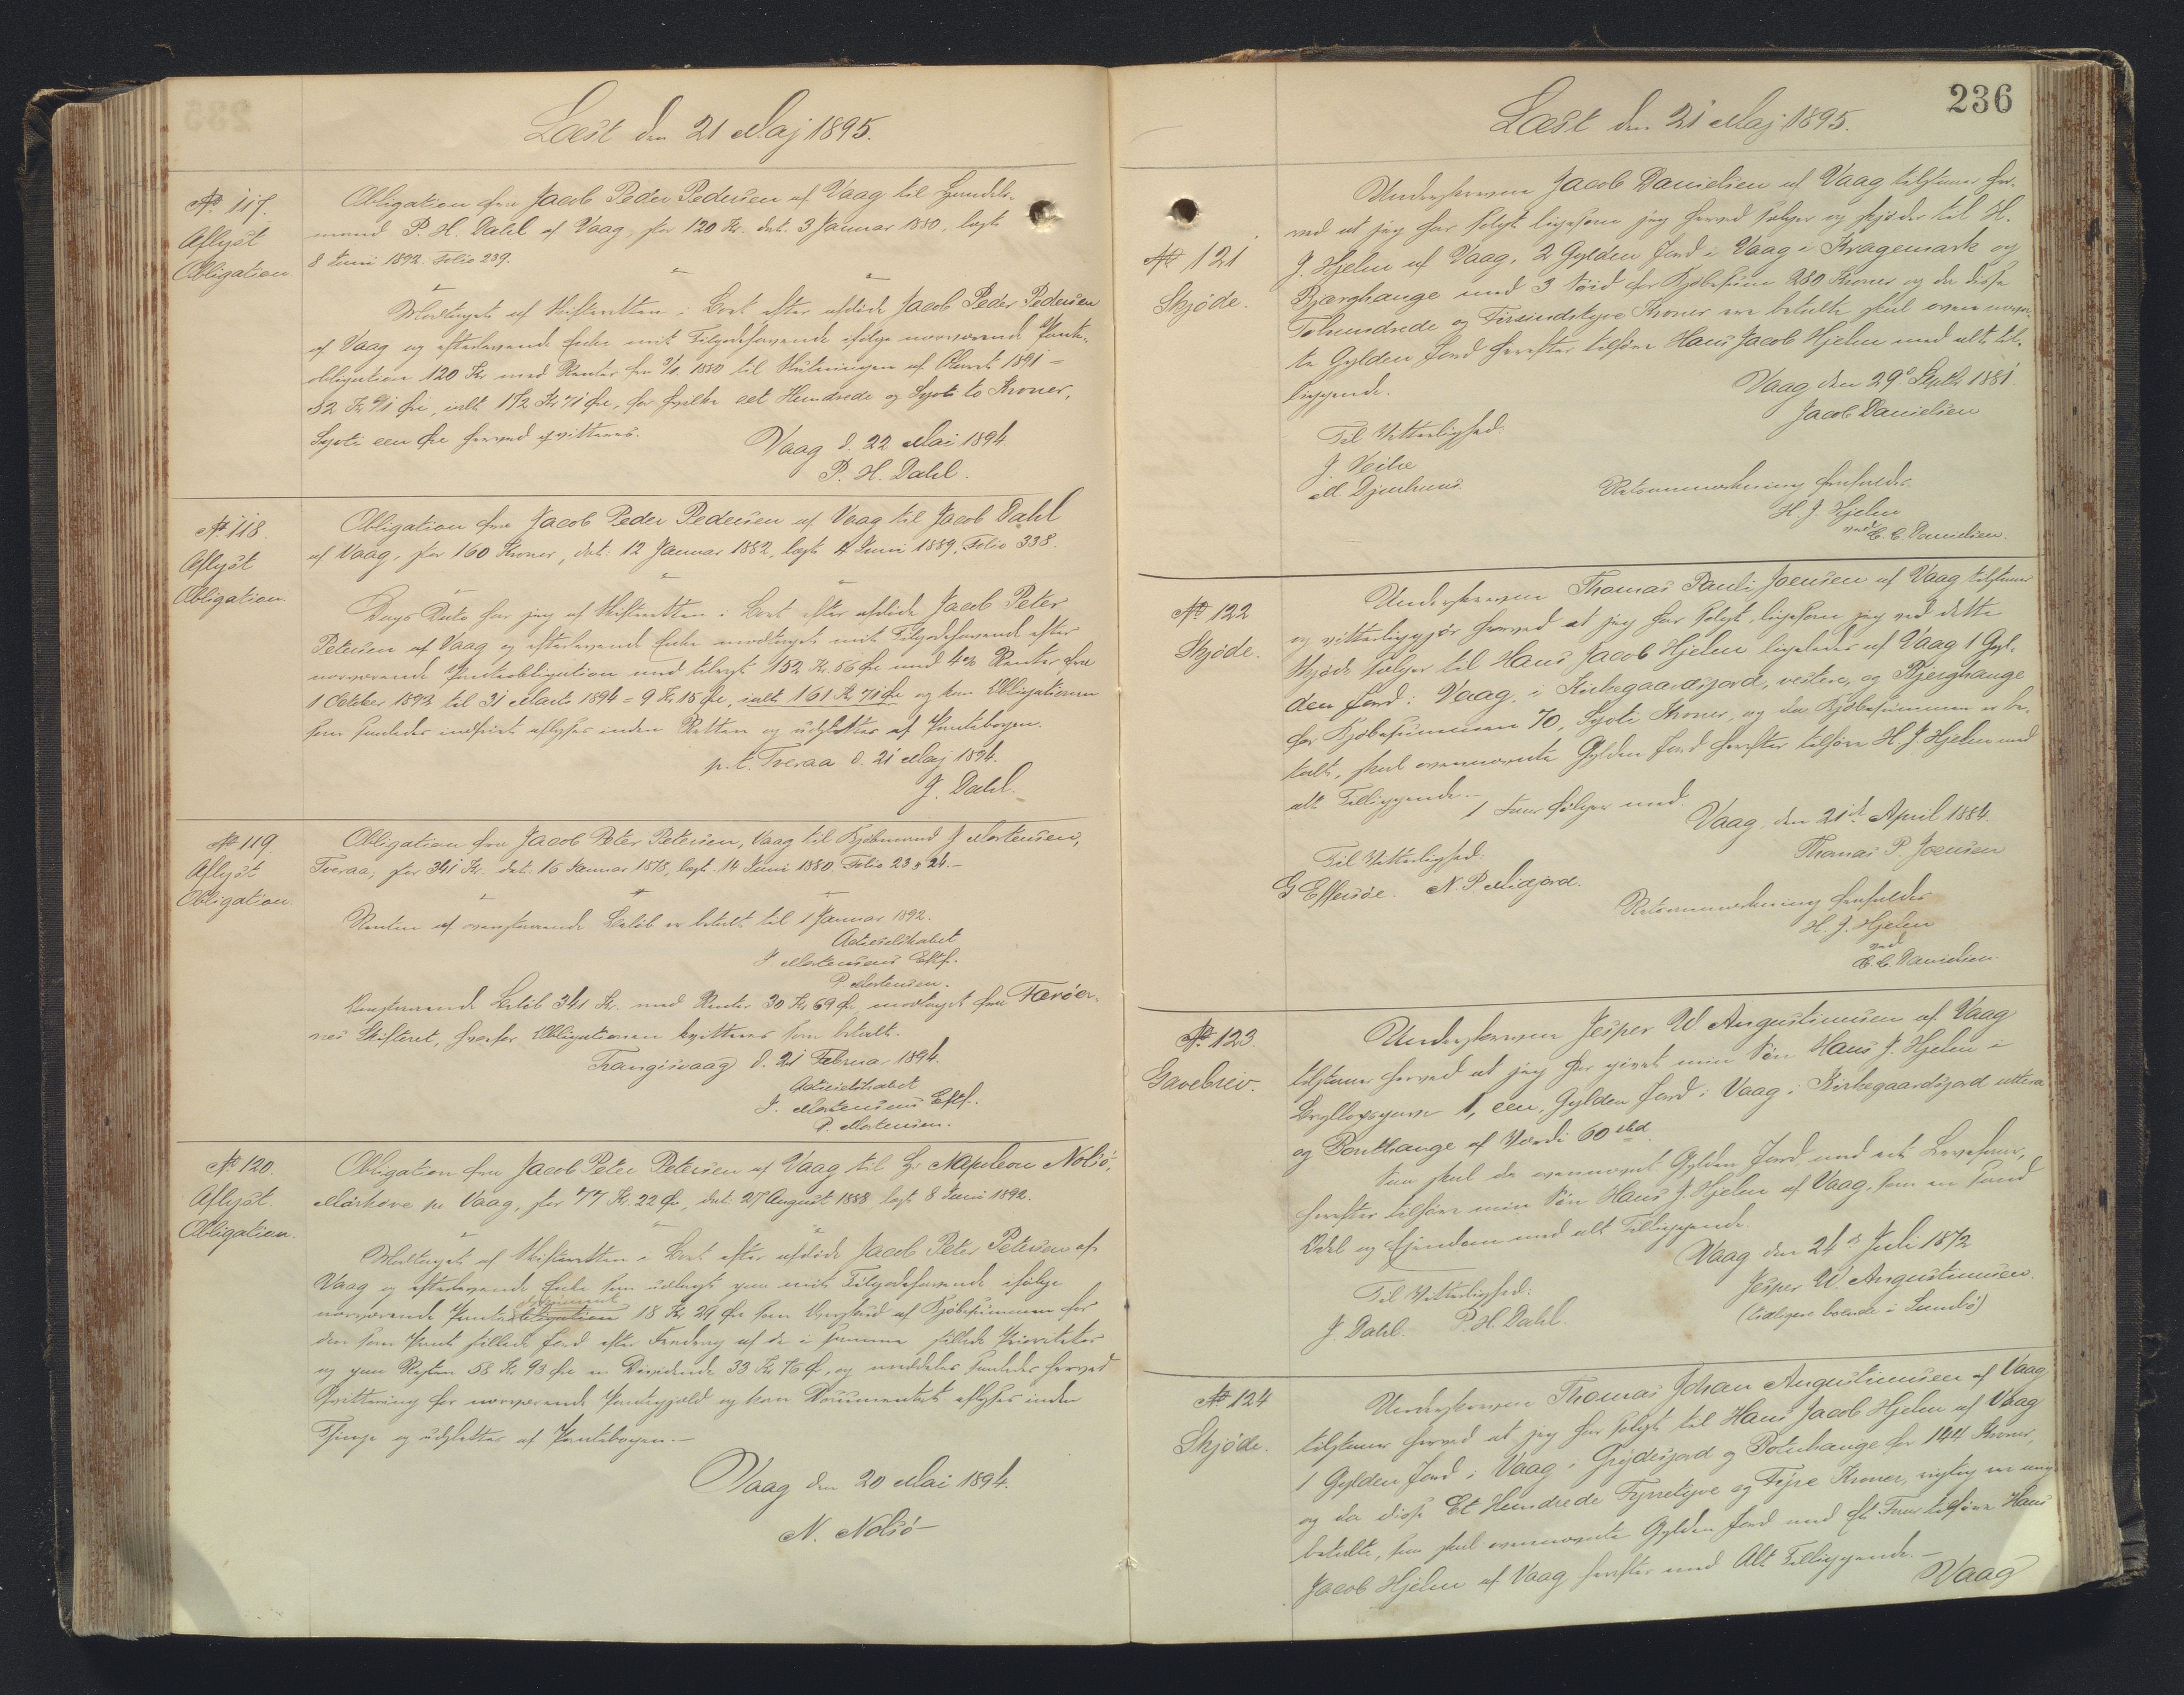 Læst den 21 Maj 1895.
№ 117.
Aflyst
Obligation.
Obligation fra Jacob Peder Pedersen af Vaag til Handels-
mand P. H. Dahl af Vaag, for 120 Kr. dat. 3 Januar 1880, læst
8 Juni 1892. Folio 239.
Modtaget af Skifteretten i Boet efter afdøde Jacob Peder Pedersen
af Vaag og efterlevende Enke mit Tilgodehavende ifølge nærværende Pante-
obligation 120 Kr med Renter fra 3/1 1880 til Slutningen af Aaret 1891 =
52 Kr 71 Øre, ialt 172 Kr 71 Øre, for hvilke eet Hundrede og Syvti to Kroner,
Syvti een Øre herved qvitteres.
Vaag d. 22 Mai 1894.
P. H. Dahl.
№ 118.
Aflyst
Obligation.
Obligation fra Jacob Peder Pedersen af Vaag til Jacob Dahl
af Vaag, for 160 Kroner, dat: 12 Januar 1882, læst 4 Juni 1889, Folio 338.
Dags Dato har jeg af Skifteretten i Boet efter afdøde Jacob Peter
Petersen af Vaag og efterlevende Enke modtaget mit Tilgodehavende efter
nærværende Panteobligation med tilsagt 152 Kr. 56 Øre med 4% Renter fra
1 Oktober 1892 til 31 Marts 1894 = 9 Kr 15 Øre, ialt 161 Kr 71 Øre og kan Obligationen
som saaledes indfriet aflyses inden Retten og udslettes af Pantebogen.
p. t. Tveraa d. 21 Maj 1894.
J. Dahl.
№ 119.
Aflyst
Obligation.
Obligation fra Jacob Peter Petersen, Vaag til Kjøbmand J. Mortensen,
Tveraa, for 341 Kr. dat. 16 Januar 1878, læst 14 Juni 1880. Folio 23 & 24.-
Renten af ovenstaaende Beløb er betalt til 1 Januar 1892.
Actieselskabet
J. Mortensens Eftf.
P. Mortensen.
Ovenstaaende Beløb 341 Kr. med Renter 30 Kr 69 Øre modtaget fra Færøer-
nes Skifteret, hvorfor Obligationen kvitteres som betalt.
Trangisvaag d. 21 Februar 1894.
Actieselskabet
J. Mortensens Eftf.
P. Mortensen.
№ 120.
Aflyst.
Obligation.
Obligation fra Jacob Peter Petersen af Vaag til Hr Napoleon Nolsø,
Mårkøre pr Vaag, for 77 Kr. 22 Øre, dat: 27 August 1888, læst 8 Juni 1892.
Modtaget af Skifteretten i Boet efter afdøde Jacob Peter Petersen af
Vaag og efterlevende Enke som udlagt paa mit Tilgodehavende ifølge
dokument
nærværende Panteobligation 18 Kr 29 Øre som Overskud af Kjøbesummen for
den som Pant stillede Jord efter Fradrag af de i samme stillede Prioriteter
og paa Resten 58 Kr. 93 Øre en Dividende 33 Kr 76 Ø, og meddeles saaledes herved
Qvittering for nærværende Pantegjæld og kan Documentet aflyses inden
Thinge og udslettes af Pantebogen.-
Vaag den 20 Mai 1894.
N. Nolsö
236
Læst den 21 Maj 1895.
№ 121
Skjøde.
Undertegnede Jacob Danielsen af Vaag tilstaaer her-
ved at jeg har solgt ligesom jeg herved sælger og skjøder til H.
J. Hjelm af Vaag, 2 Gylden Jord i Vaag i Kragemark og
Bjærghauge med 3 Søid for Kjøbesum 280 Kroner og da disse
Tohundrede og Firsindstyve Kroner ere betalte skal ovennævn-
te Gylden Jord herefter tilhøre Hans Jacob Hjelm med alt til-
liggende.
Vaag den 29de Septbr 1881.
Jacob Danielsen
Til Vitterlighed:
J. Veihe
M. Djurhuus.
Retsanmærkning frafaldes
H. J. Hjelm
ved E. C. Danielsen.
№ 122
Skjøde.
Underskrevne Thomas Pauli Joensen af Vaag tilstaaer
og vitterliggjør herved at jeg har solgt, ligesom jeg ved dette
Skjøde sælger til Hans Jacob Hjelm ligeledes af Vaag 1 Gyl-
den Jord i Vaag, i Kirkegaardsjord, vestera, og Bjerghauge
for Kjøbesummen 70, Syvti Kroner, og da Kjøbesummen er be-
talt, skal ovennævnte Gylden Jord herefter tilhøre H. J. Hjelm med
alt Tilliggende.-
1 Faar følger med.
Vaag, den 21de April 1884.
Thomas P. Joensen
Til Vitterlighed:
G Effersøe. N. P. Midjord.
Retsanmærkning frafaldes
H. J. Hjelm
ved
E. C. Danielsen.
№ 123.
Gavebrev.
Underskrevne Jesper W. Augustinussen af Vaag
tilstaaer herved at jeg har givet min Søn Hans J. Hjelm i
Bryllupsgave 1, een, Gylden Jord i Vaag i Kirkegaardsjord uttera
og Bonkhauge af Værdi 60 Rd.
Saa skal da ovennævnt Gylden Jord med eet
herefter tilhøre min Søn Hans J. Hjelm af Vaag, som en sand
Odel og Ejendom med alt Tilliggende.
Vaag den 24de Juli 1872
Jesper W Augustinussen.
(tidligere boende i Sumbø)
Til Vitterlighed:
J. Dahl. P. H. Dahl.
№ 124
Skjøde.
Underskrevne Thomas Johan Augustinussen af Vaag
tilstaaer herved at jeg har solgt til Hans Jacob Hjelm af Vaag
1 Gylden Jord i Vaag i Grydesjord og Botnhauge for 144 Kroner,
og da disse Et Hundrede Fyrretyve og Fire Kroner, rigtig er mig
betalte, saa skal ovennævnte Gylden Jord med Et Faar tilhøre Hans
Jacob Hjelm af Vaag herefter med Alt Tilliggende.-
Vaag